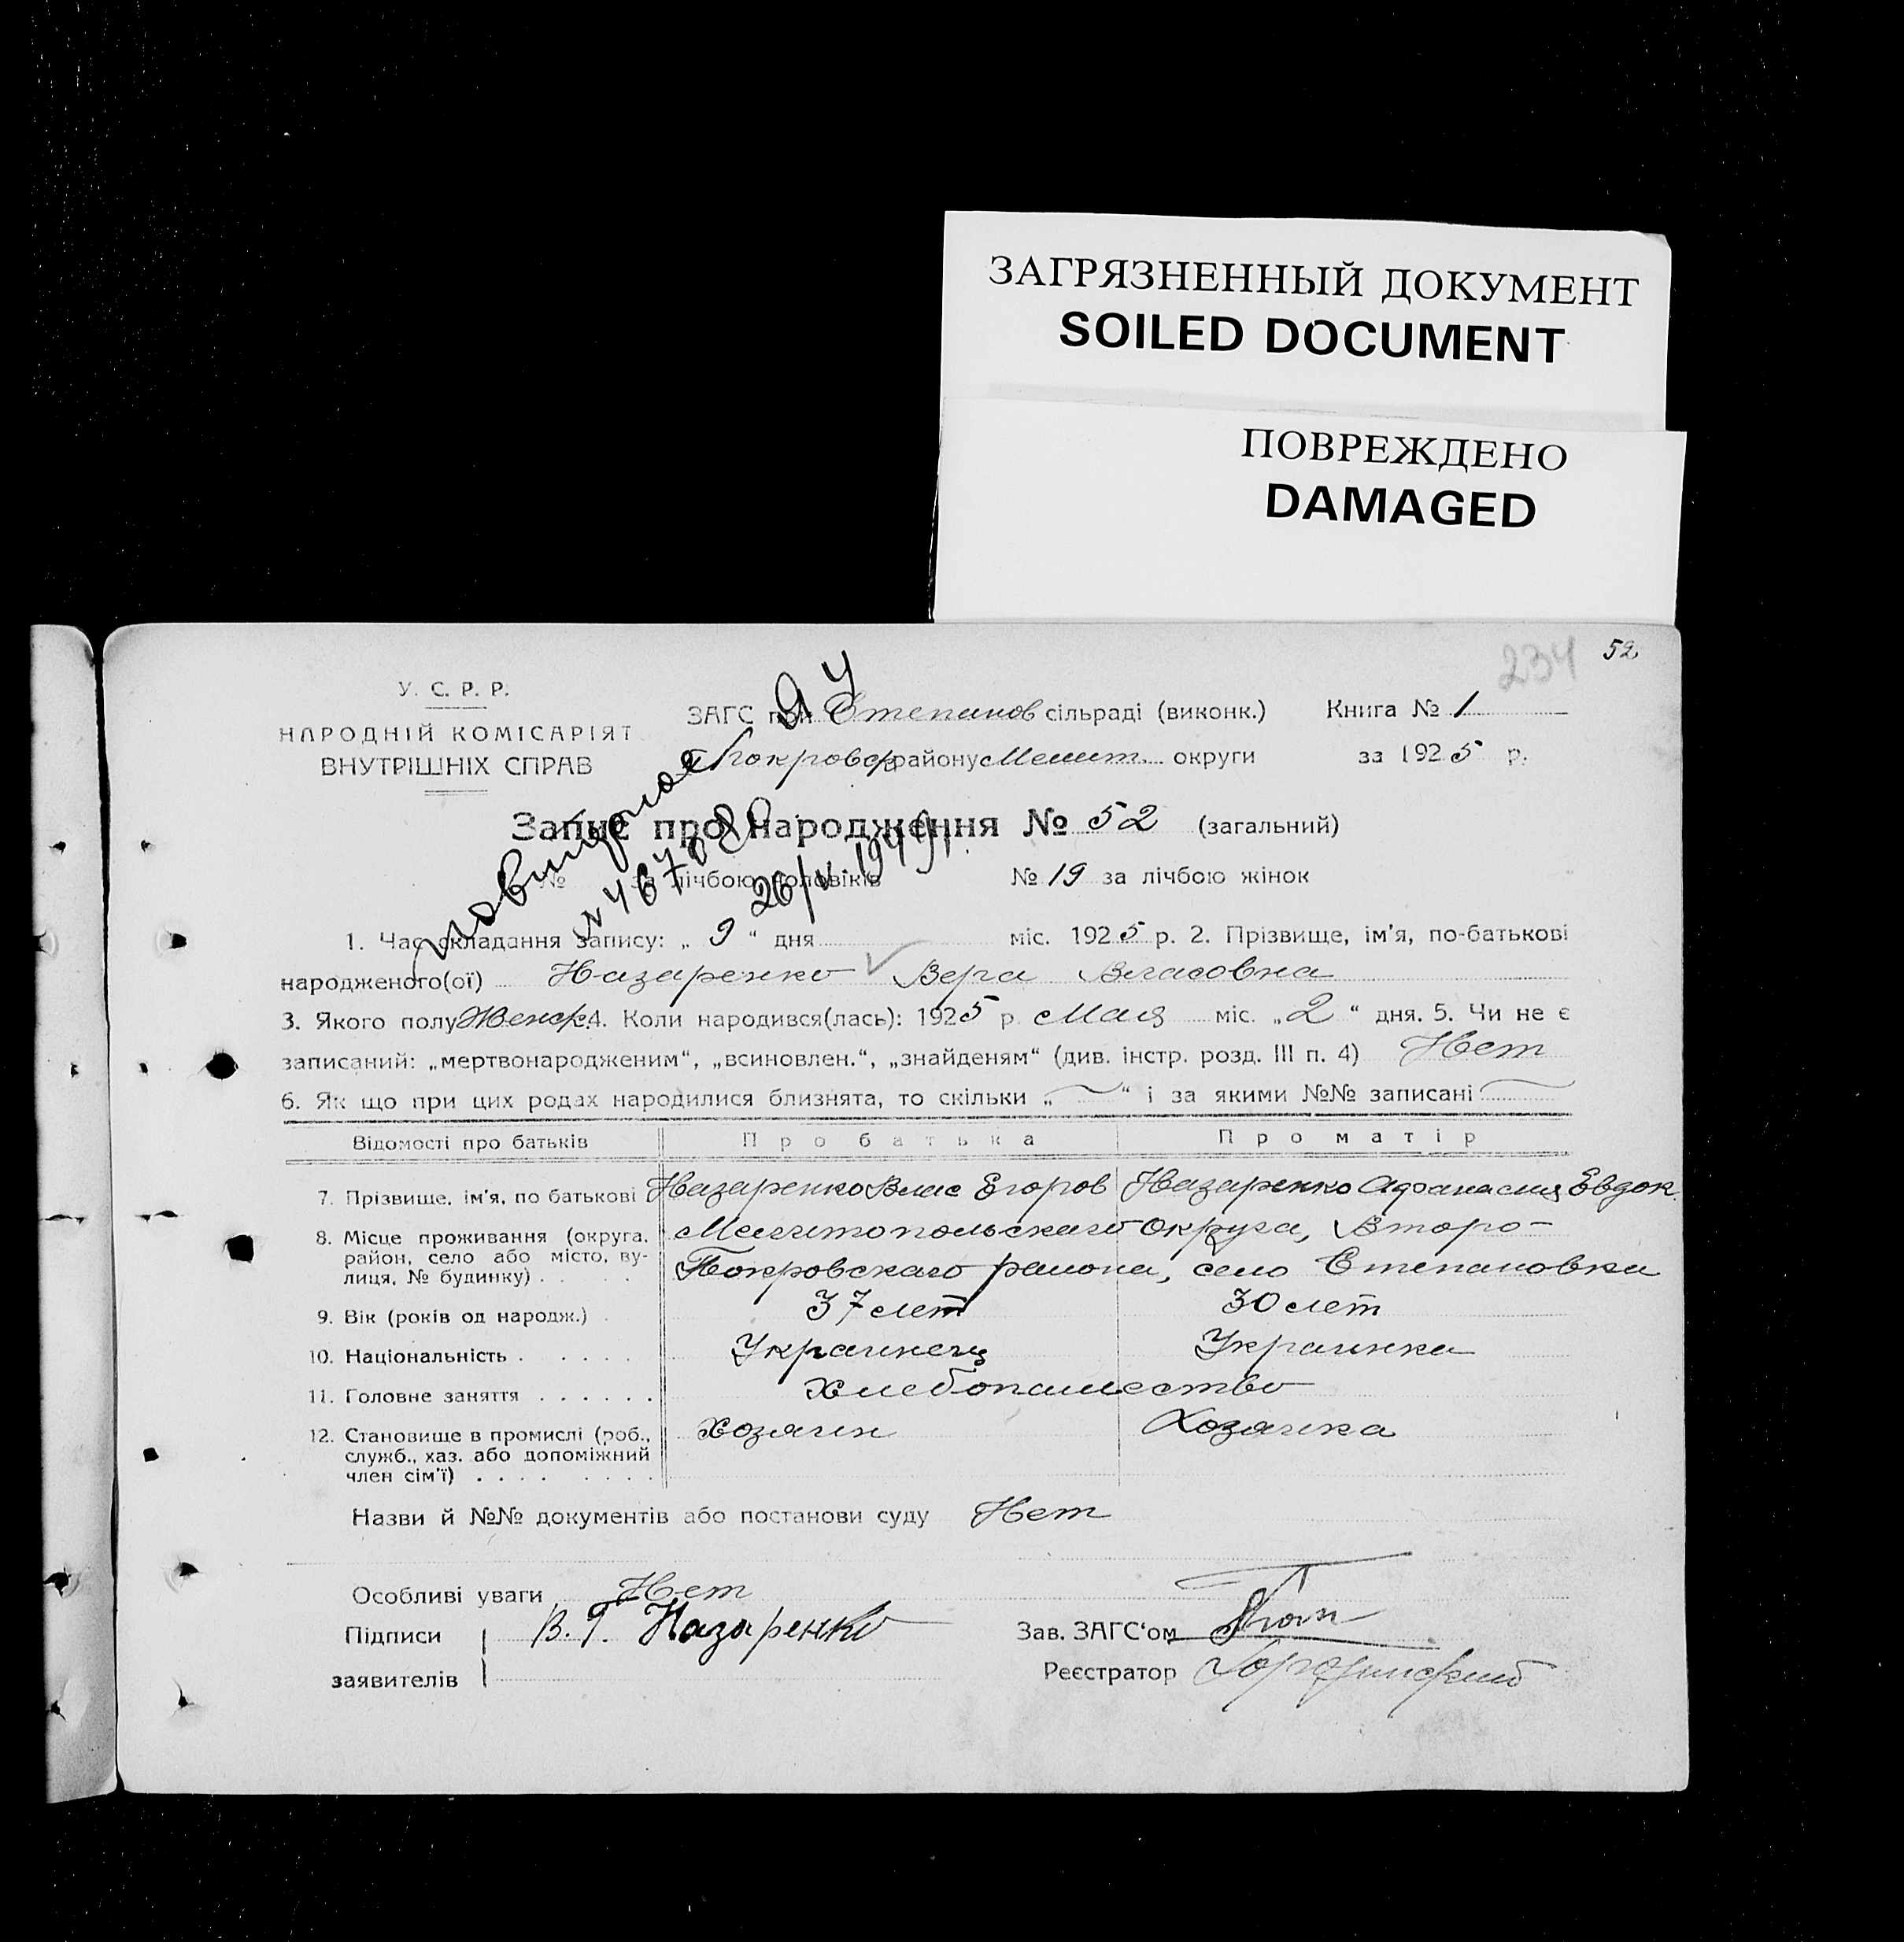 ЗАГРЯЗНЕННЫЙ ДОКУМЕНТ
SOILED DOCUMENT
ПОВРЕЖДЕНО
DAMAGED
234 52
У. С. Р. Р.
НАРОДНІЙ КОМІСАРІЯТ
ВНУТРІШНІХ СПРАВ
ЗАГС при Степанов сільраді (виконк.) Книга № 1
Покровск району Мелит. округи за 1925 р.
Запис про народження № 52 (загальний)
№ за лічбою чоловіків № 19 за лічбою жінок
повторное
26/V-1949
1. Час складання запису: „ 9 “ дня міс. 1925 р. 2. Прізвище, ім'я, по-батькові
народженого(ої) Назаренко Вера Власовна
3. Якого полу Женск. 4. Коли народився(лась): 1925 р. Мая міс. „ 2 “ дня. 5. Чи не є
записаний: „мертвонародженим“, „всиновлен.“, „знайденям“ (див. інстр. розд. III п. 4) Нет
6. Як що при цих родах народилися близнята, то скільки „ “ і за якими №№ записані
Відомості про батьків Про батька Про матір
7. Прізвище, ім'я, по батькові Назаренко Влас Егоров Назаренко Афанасия Евдок.
8. Місце проживання (округа, Мелитопольскаго округа, Второ-
район, село або місто, ву- Покровскаго района, село Степановка
лиця, № будинку)
9. Вік (років од народж.) 37 лет 30 лет
10. Національність Украинец Украинка
11. Головне заняття Хлебопашество
12. Становище в промислі (роб., Хозяин Хозяйка
служб., хаз. або допоміжний
член сім'ї)
Назви й №№ документів або постанови суду Нет
Особливі уваги Нет
Підписи В. Г. Назаренко Зав. ЗАГС‘ом
заявителів Реєстратор